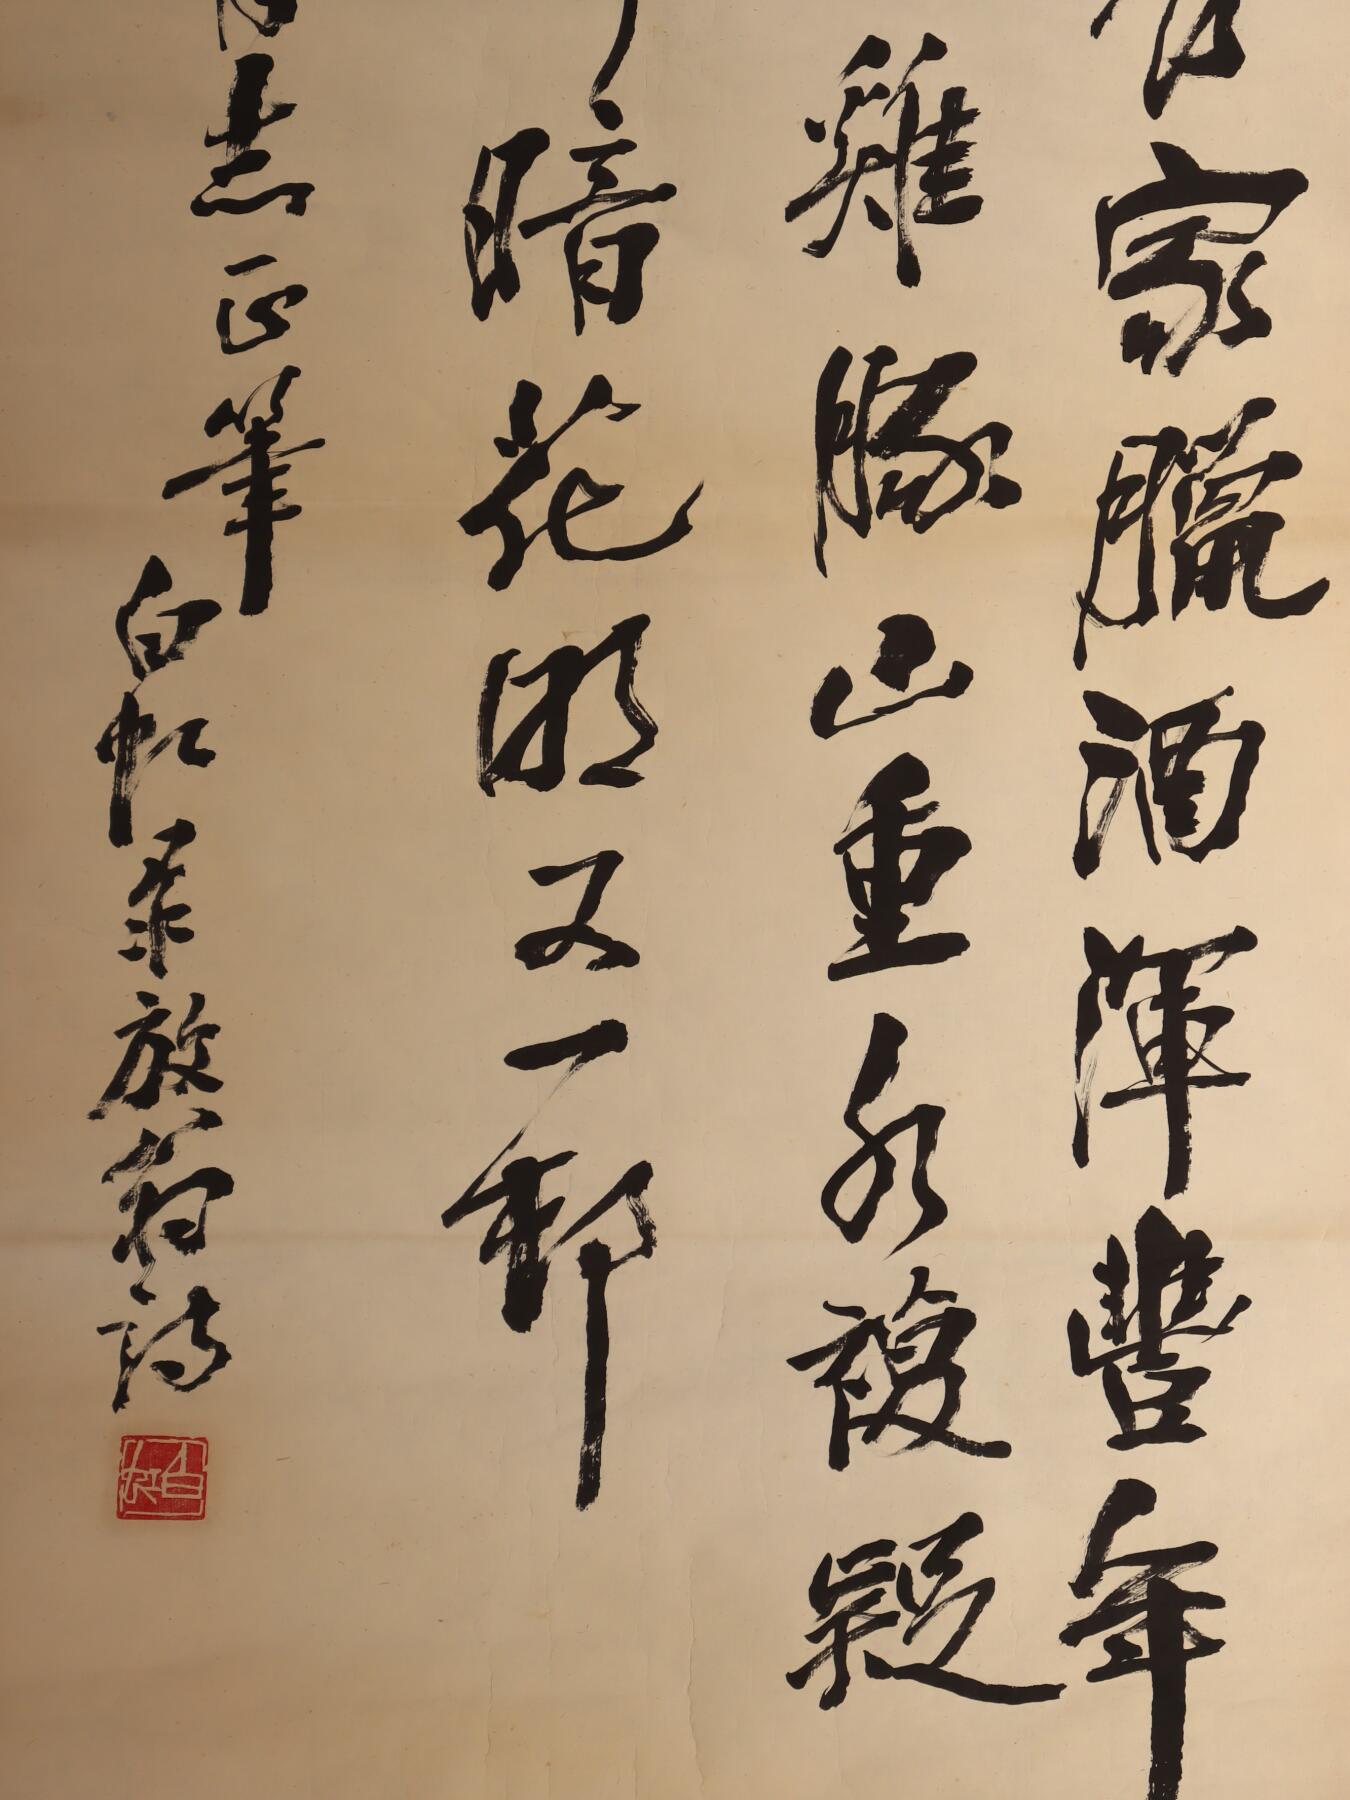 家臘酒渾豐年
雞豚山重水複疑
暗花明又一邨
志正筆
白虹录放翁詩
白虹